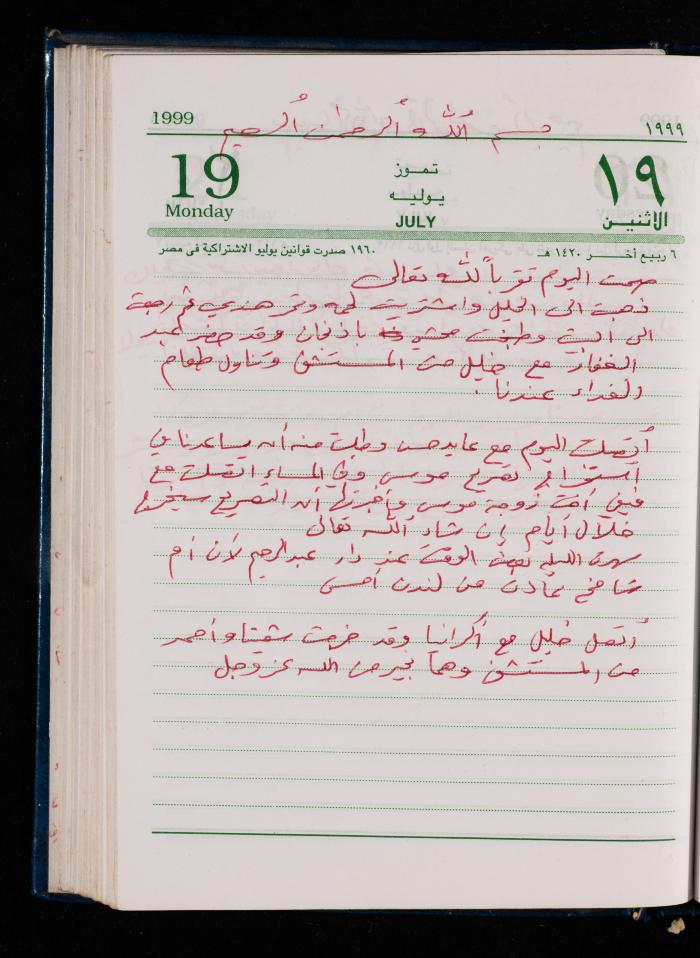 1999
١٩٩٩
بسم الله الرحمن الرحيم
19
Monday
تموز
يوليه
JULY
١٩
الاثنين
٦ ربيع آخر ١٤٢٠ هـ
١٩٦٠ صدرت قوانين يوليو الاشتراكية فى مصر
صمت اليوم تقرباً لله تعالى
ذهبت الى الخليل واشتريت لحمه وتمر هندي ثم رجعت
الى البيت وطبخت محشي باذنجان وقد حضر عبد
الغفار مع خليل من المستشفى وتناول طعام
الغداء عندنا.
أتصلت اليوم مع عايد حسن وطلبت منه أن يساعدنا في
استخراج تصريح موسى وفي المساء اتصلت مع
أخت زوجة موسى وأخبرتها أن التصريح سيخرج
خلال أيام إن شاء الله تعالى
سهرت الليلة بعض الوقت عند دار عبد الرحيم لأن أم
عادت من لندن أمس
أتصل خليل مع وقد خرجت وأحمد
من المستشفى وهما بخير من الله عز وجل